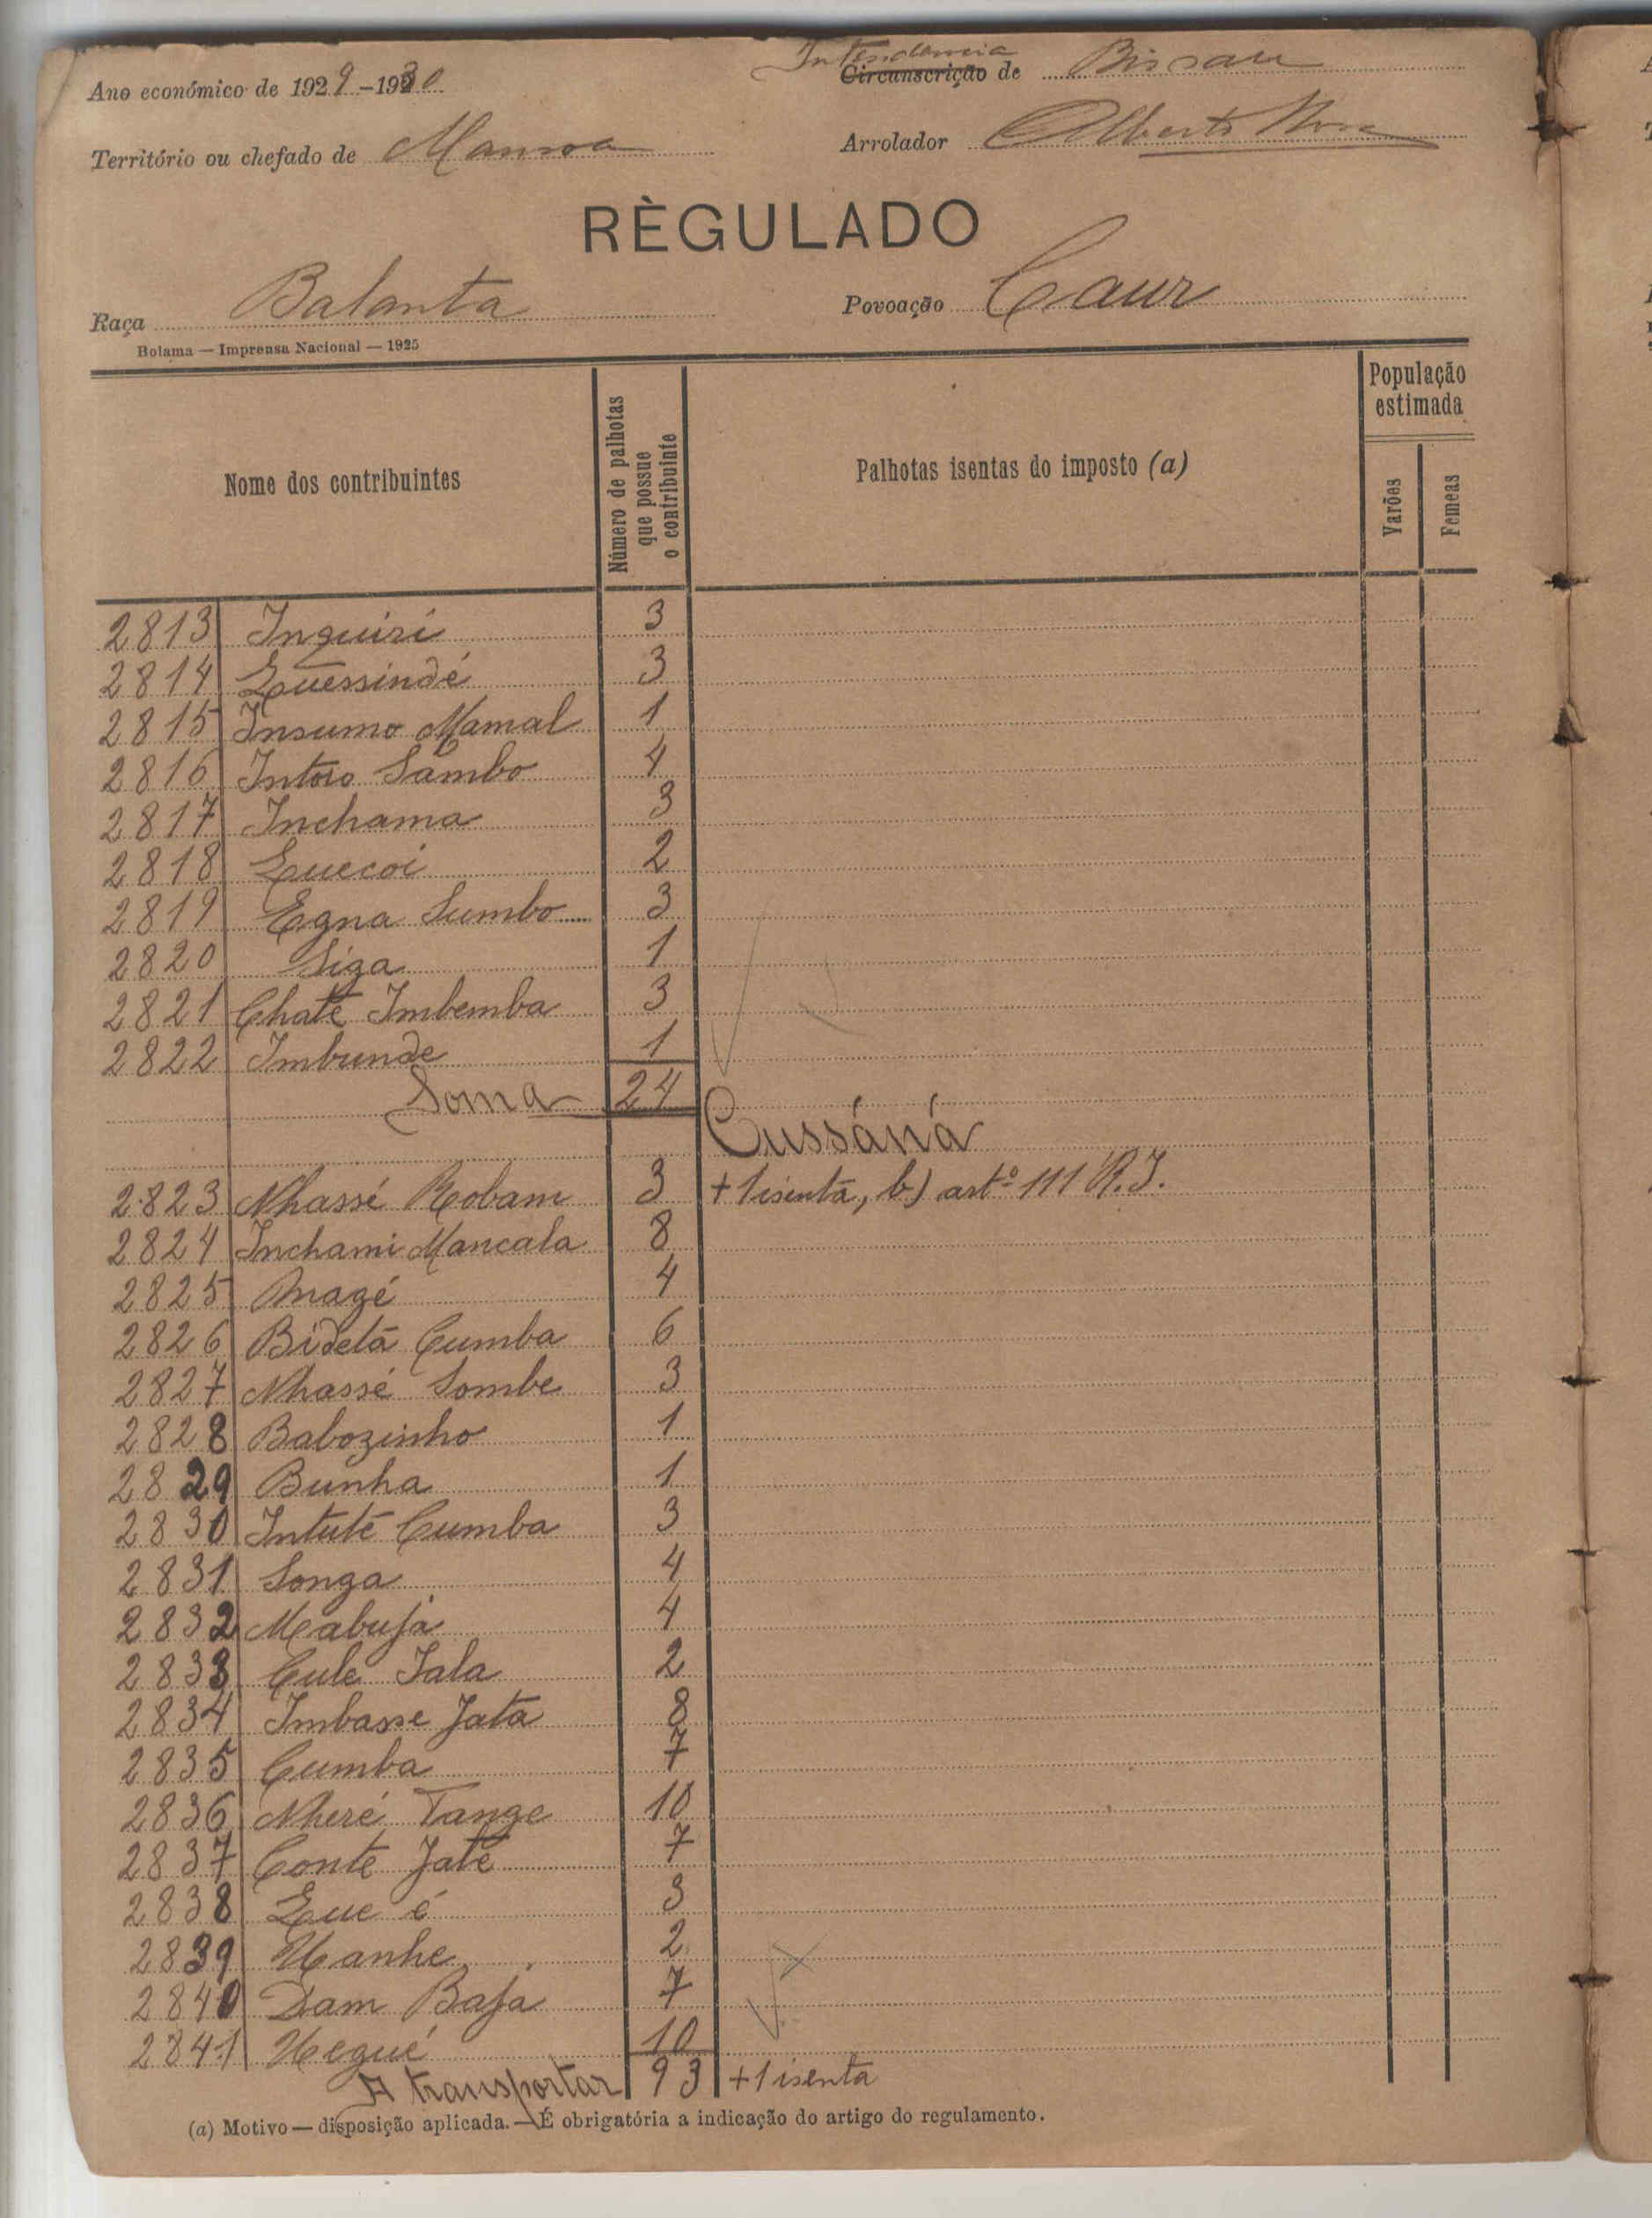 Intendencia
Ano económico de 1929-1930 Circunscrição de Bissau
Território ou chefado de Mansoa Arrolador Alberto
RÈGULADO
Raça Balanta Povoação Caur
Bolama — Imprensa Nacional — 1925
Nome dos contribuintes
Número de palhotas
que possue
o contribuinte
Palhotas isentas do imposto (a)
População
estimada
Varões
Femeas
2813 Inquiri 3
2814 Quessindé 3
2815 Insumo Mamal 1
2816 Intoro Sambo 4
2817 Inchama 3
2818 Quecoi 2
2819 Egna Sumbo 3
2820 Siga 1
2821 Chate Imbemba 3
2822 Imbunde 1
Soma 24
Cussáná
2823 Nhassé Robam 3 +1 isenta, b) artº 111 R.I.
2824 Inchami Mancala 8
2825 Anagé 4
2826 Bidetá Cumba 6
2827 Nhassé Sombe 3
2828 Babozinho 1
2829 Bunha 1
2830 Intuté Cumba 3
2831 Songa 4
2832 Mabuja 4
2833 Cule Jala 2
2834 Imbasse Jata 8
2835 Cumba 7
2836 Nheré Tange 10
2837 Conte Jate 7
2838 Que é 3
2839 Uanhe 2
2840 Dam Baja 7
2841 Uegué 10
A transportar 93 +1 isenta
(a) Motivo — disposição aplicada. — É obrigatória a indicação do artigo do regulamento.